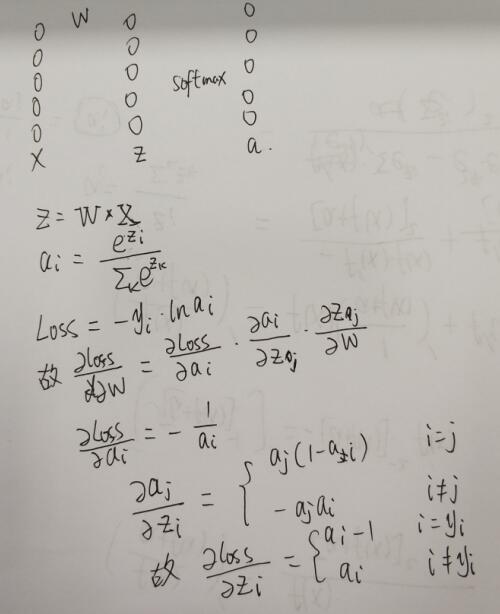 W
softmax
X Z a.
Z = W × X
ai = e^{zi} / Σk e^{zk}
Loss = -yi · ln ai
故 ∂loss/∂W = ∂loss/∂ai · ∂ai/∂zj · ∂zj/∂W
∂loss/∂ai = - 1/ai
∂aj/∂zi = { aj(1-ai) i=j
-ajai i≠j
故 ∂loss/∂zi = { ai-1 i=yi
ai i≠yi